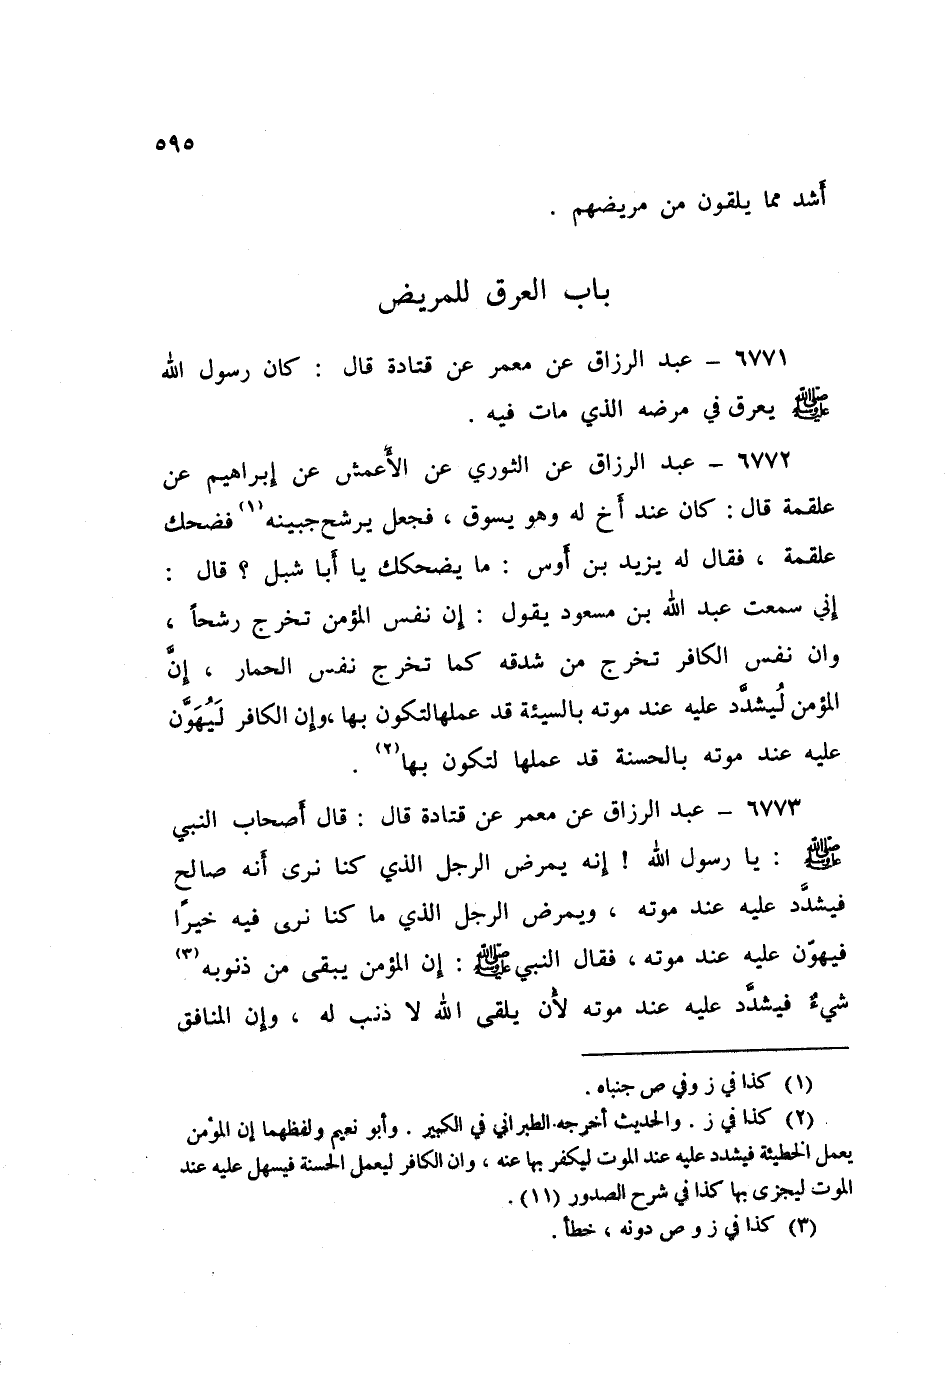 ٥٩٥
أَشد مما يلقون من مريضهم .
باب العرق للمريض
٦٧٧١ – عبد الرزاق عن معمر عن قتادة قال : كان رسول الله
ﷺ يعرق في مرضه الذي مات فيه .
٦٧٧٢ – عبد الرزاق عن الثوري عن الأَعمش عن إبراهيم عن
علقمة قال : كان عند أَخ له وهو يسوق ، فجعل يرشح جبينه (١) فضحك
علقمة ، فقال له يزيد بن أَوس : ما يضحكك يا أَبا شبل ؟ قال :
إني سمعت عبد الله بن مسعود يقول : إن نفس المؤمن تخرج رشحاً ،
وان نفس الكافر تخرج من شدقه كما تخرج نفس الحمار ، إنَّ
المؤمن لُيشدَّد عليه عند موته بالسيئة قد عملها لتكون بها ، وإن الكافر لَيُهَوَّن
عليه عند موته بالحسنة قد عملها لتكون بها (٢) .
٦٧٧٣ – عبد الرزاق عن معمر عن قتادة قال : قال أَصحاب النبي
ﷺ : يا رسول الله ! إنه يمرض الرجل الذي كنا نرى أَنه صالح
فيشدَّد عليه عند موته ، ويمرض الرجل الذي ما كنا نرى فيه خيرًا
فيهوّن عليه عند موته ، فقال النبي ﷺ : إن المؤمن يبقى من ذنوبه (٣)
شيءٌ فيشدَّد عليه عند موته لأَن يلقى الله لا ذنب له ، وإن المنافق
(١) كذا في ز وفي ص جنباه .
(٢) كذا في ز . والحديث أخرجه الطبراني في الكبير . وأبو نعيم ولفظهما إن المؤمن
يعمل الخطيئة فيشدد عليه عند الموت ليكفر بها عنه ، وان الكافر ليعمل الحسنة فيسهل عليه عند
الموت ليجزى بها كذا في شرح الصدور (١١) .
(٣) كذا في ز و ص دونه ، خطأ .